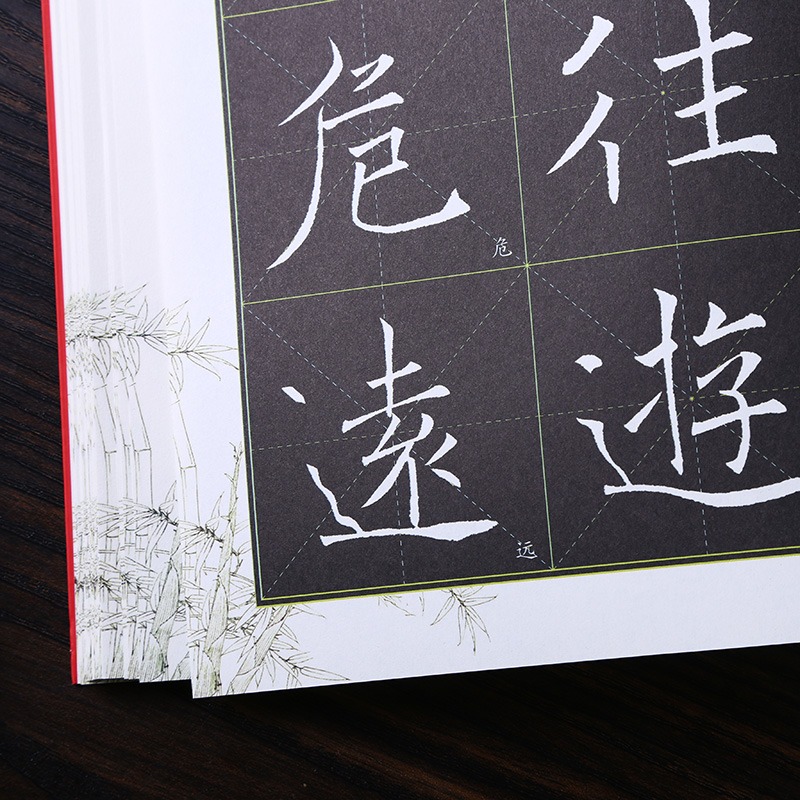 危 往
危
遠 遊
远